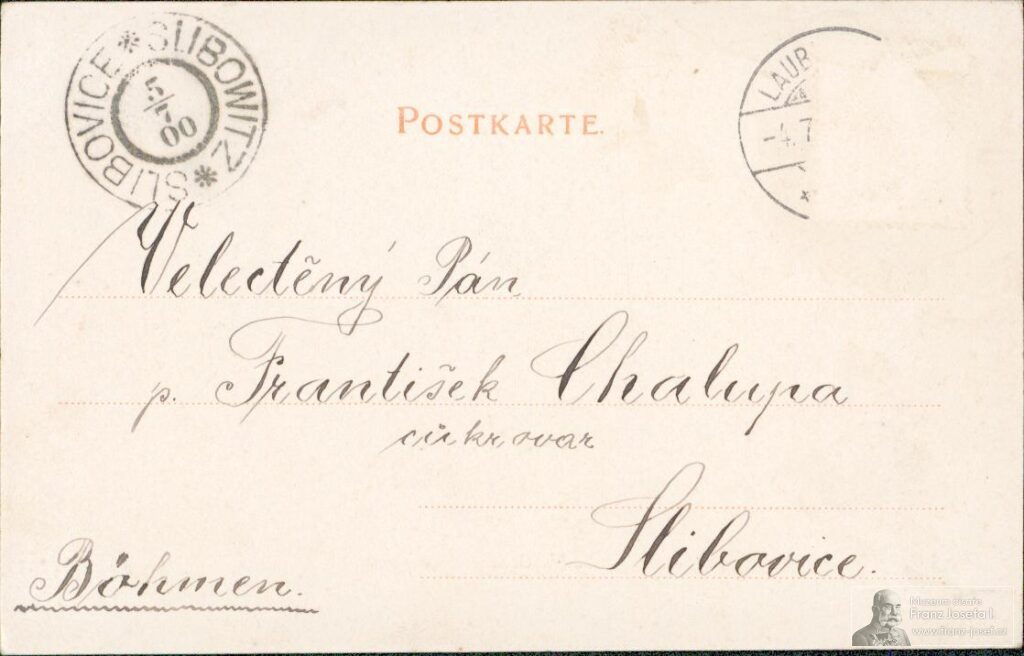 SLIBOVICE * SLIBOWITZ *
5/7
00
POSTKARTE.
LAUB
-4.7
Velectěný Pán
p. František Chalupa
cukrovar
Slibovice.
Böhmen.
Muzeum císaře
Franz Josefa I.
www.franz-josef.cz